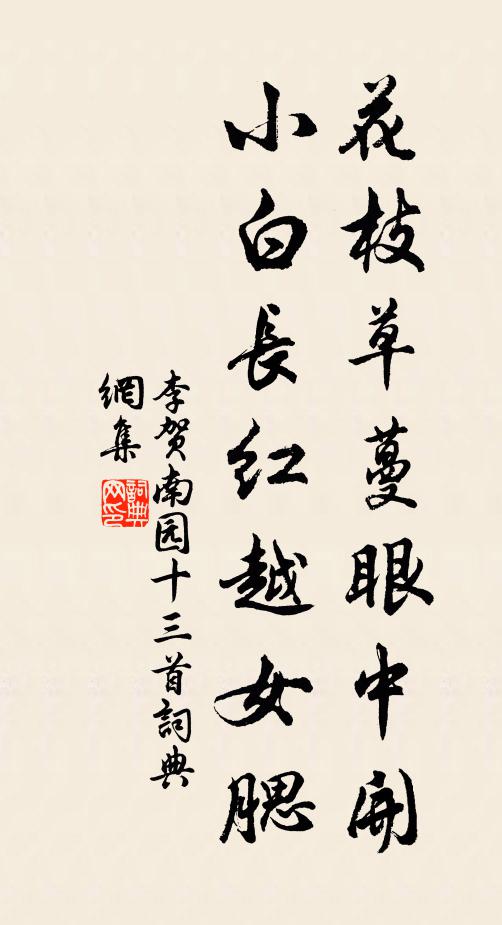 花枝草蔓眼中開
小白長红越女腮
李贺南园十三首詞典
網集
詞典
网印